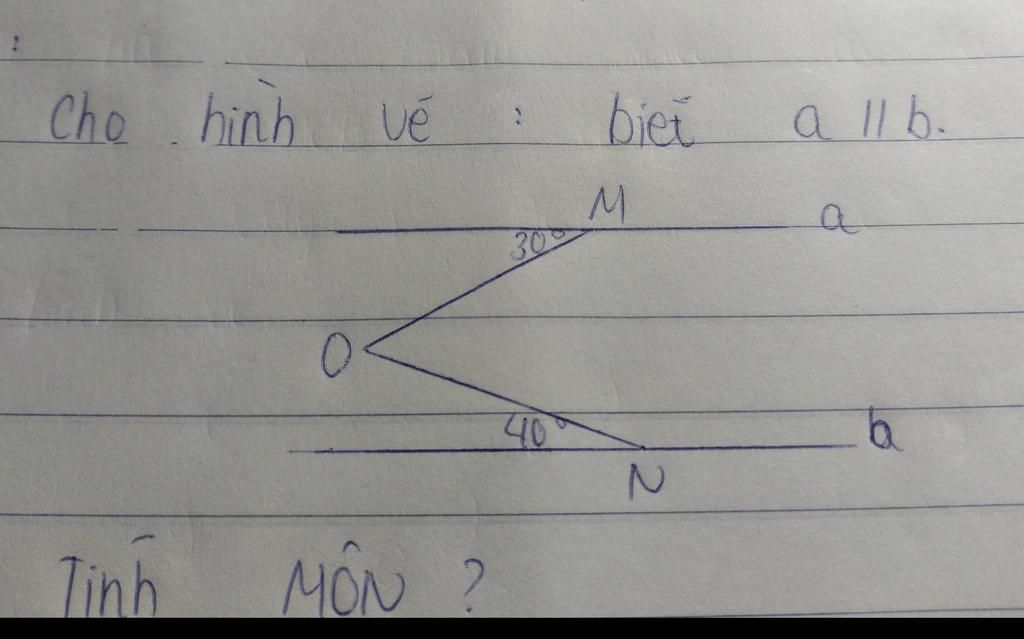 :
Cho hình vẽ : biết a // b.
M
a
30°
O
40°
b
N
Tính MÔN ?